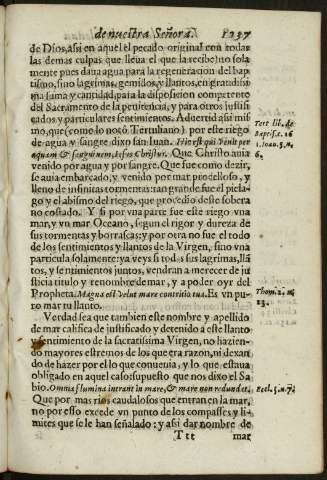 de nuestra Señora.
de Dios, asi en aquel el pecado original con todas
las demas culpas que lleua el que la recibe; no sola
mente pues da na agua para la regeneracion del bap
tismo, sino lagrimas, gemidos, y llantos, en grandissi
ma suma y cantidad, para la disposicion competente
del Sacramento de la penitencia, y para otros justifi
cados y particulares sentimientos. Aduertid asi mis
mo, que (como lo notò Tertuliano) por este riego
de agua y sangre dixo san Iuan. Hic est qui venit per
aquam & sanguinem, Iesus Christus. Que Christo auia
venido por agua y por sangre. Que fue como dezir,
se auia embarcado y venido por mar procelloso, y
lleno de infinitas tormentas: tan grande fue el piela-
go y el abismo del riego, que procedio deste sobera
no costado. Y si por vna parte fue este riego vna
mar, y vn mar Oceano, segun el rigor y dureza de
sus tormentas y borrascas; y por otra no fue el todo
de los sentimientos y llantos de la Virgen, sino vna
particula solamente: ya veys si todas sus lagrimas, llã
tos, y sentimientos juntos, vendran a merecer de ju
sticia titulo y renombre de mar, y a poder oyr del
Propheta. Magna est velut mare contritio tua. Es vn pu-
ro mar tu llanto.
Verdad sea que tambien este nombre y apellido
de mar califica de justificado y detenido a este llanto
y sentimiento de la sacratissima Virgen, no hazien-
do mayores estremos de los que era razon, ni dexan
do de hazer por el lo que conuenia, y lo que estaua
obligado en aquel caso: supuesto que nos dixo el Sa
bio. Omnia flumina intrant in mare, & mare non redundat.
Que por mas rios caudalosos que entran en la mar,
no por esso excede vn punto de los compasses y li-
mites que se le han señalado: y asi dar nombre de
Ttt mar
Tert lib. de
Bapt. c. 16
1. Ioan. 5. n.
6.
Thren. 2. n.
13.
Eccl. 1. n. 7.